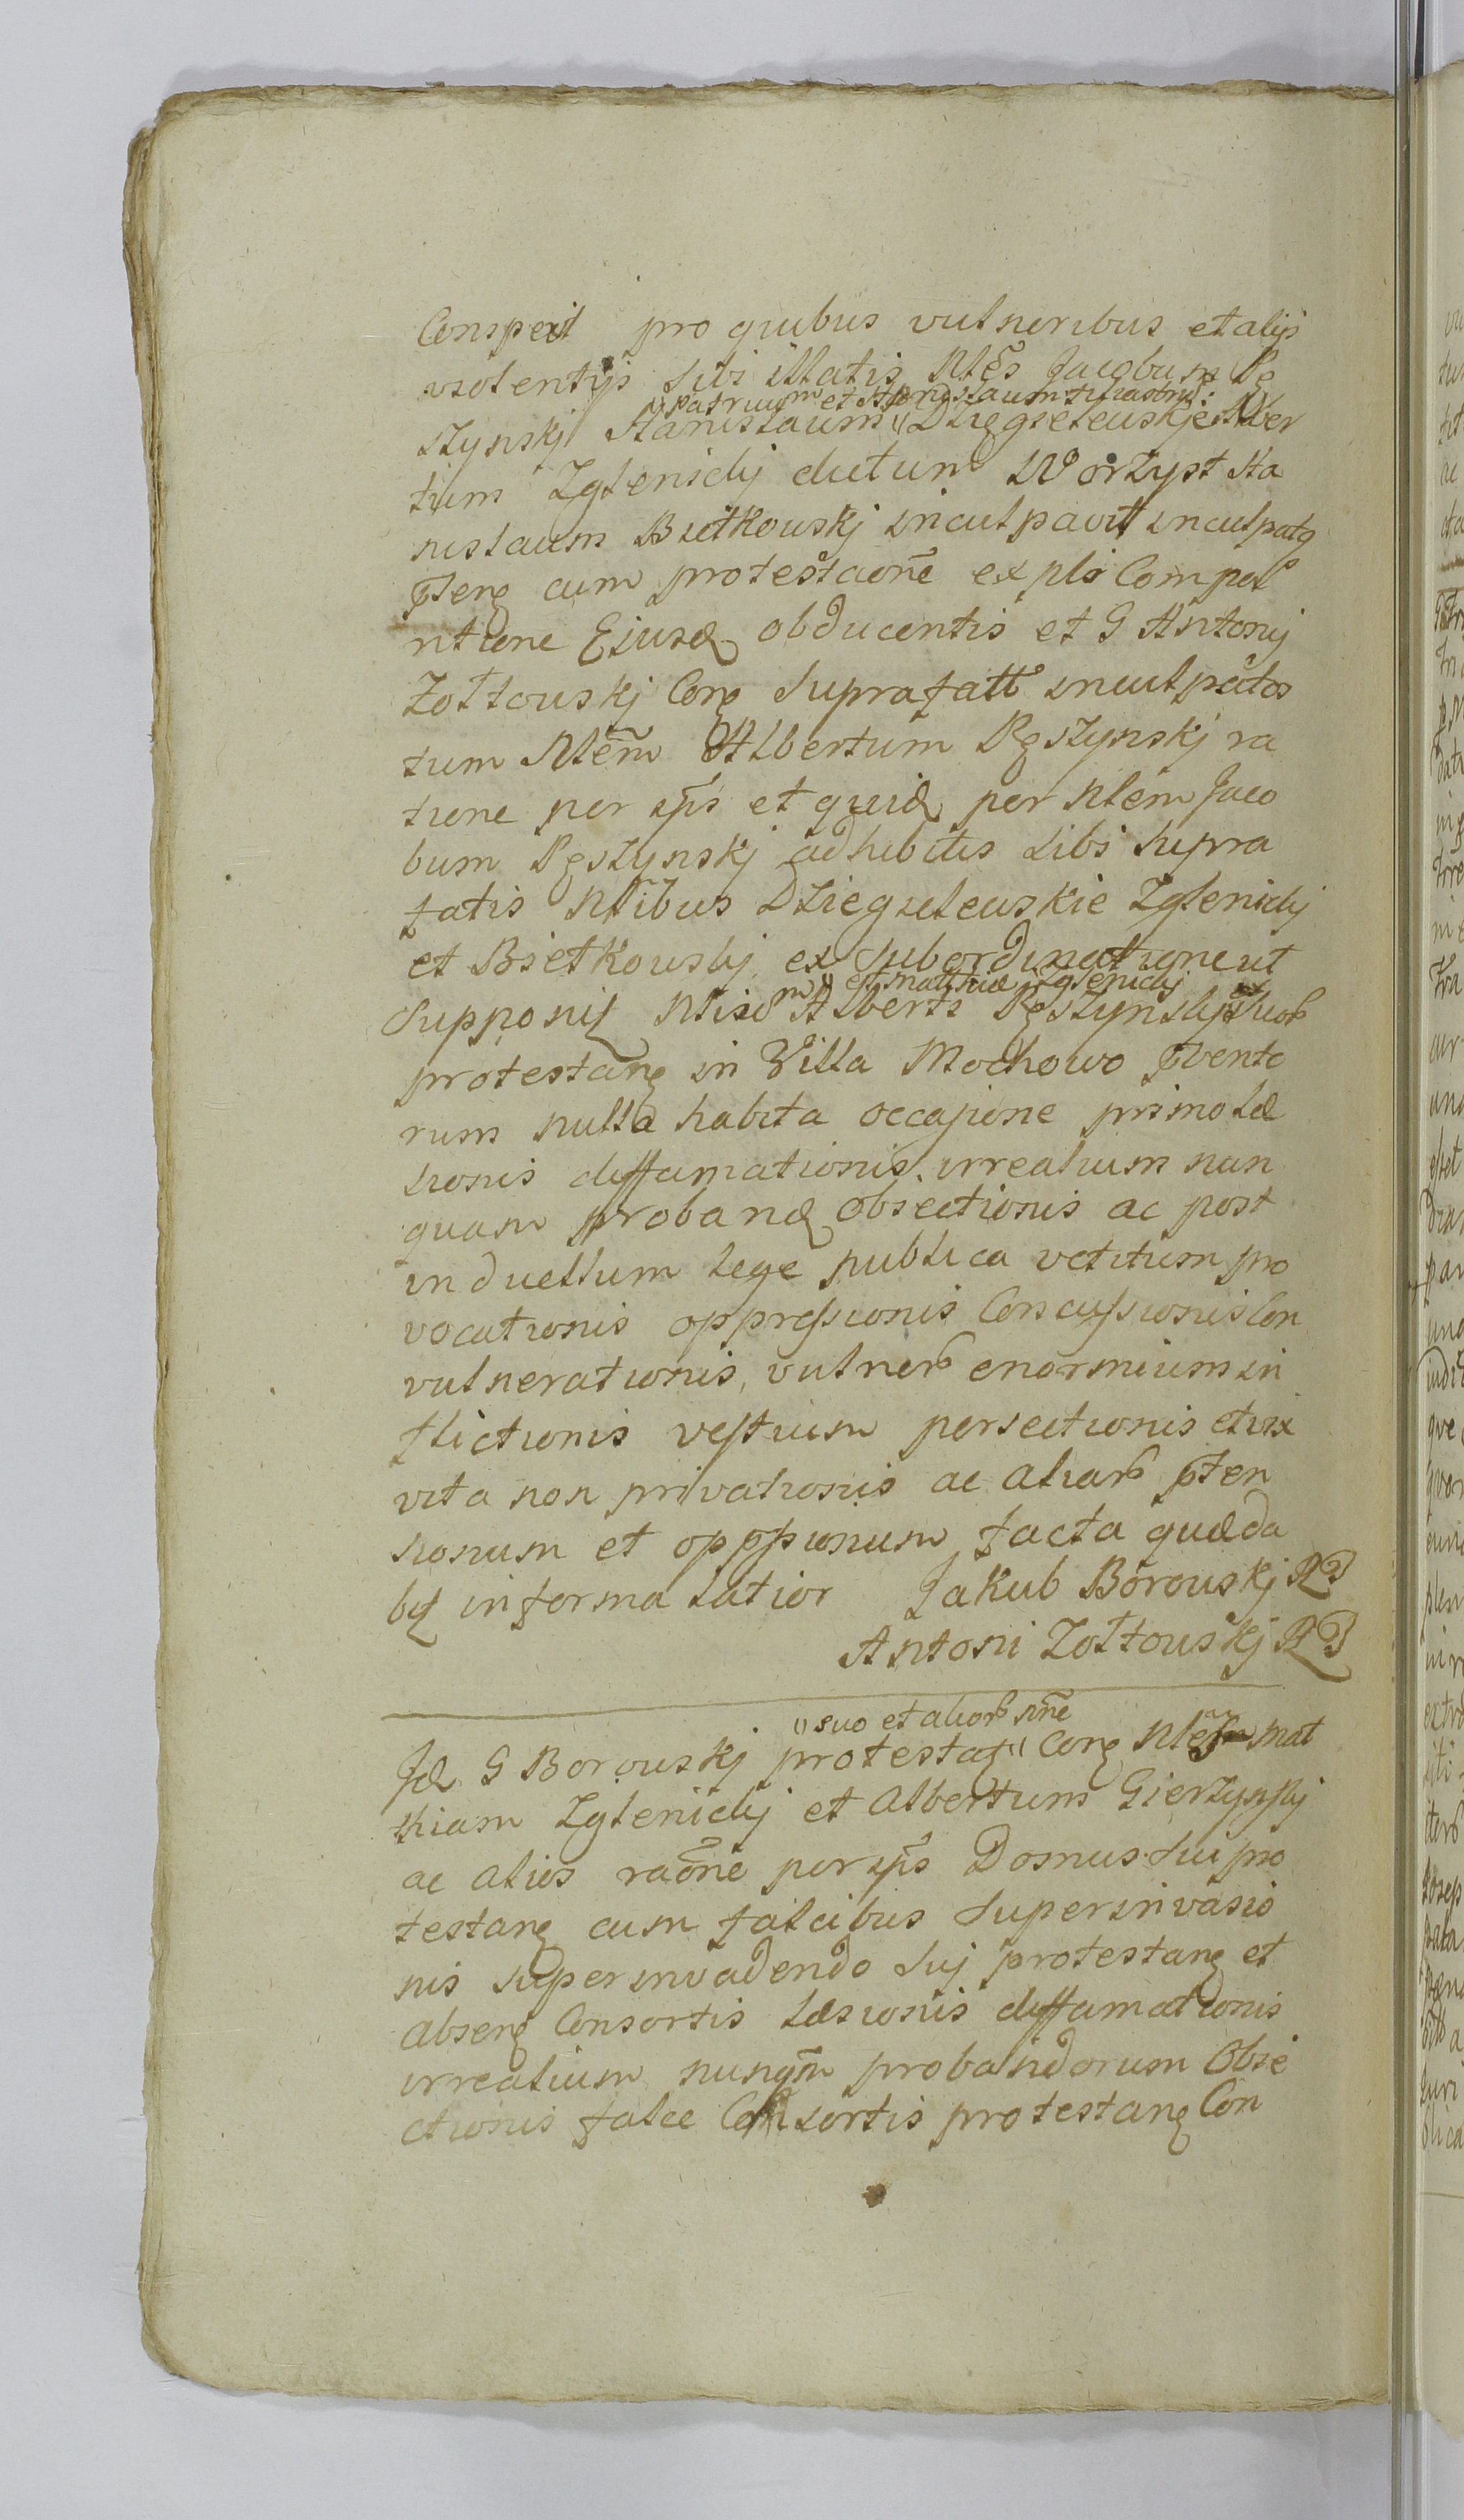 Conspexit pro quibus vulneribus et alijs
violentijs sibi illatis Nłẽs Jacobum Rę
"patruum et Stanislaum
szynskj Stanislaum "Dzięgielewskie Alber
tum Zglenickj dictum Worzyst Sta
nislaum Bietkowskj inculpavit inculpatq
cum protestaoñe ex
ntione Ejusd obducentis et G Antonij
Zołtowskj Corą suprafatt inculpatos
tum Nłẽm Albertum Ręszynskj ra
tione per ip̃s et quid per Nłẽm Jaco
bum Ręszynskj adhibitis sibi supra
fatis Nłibus Dziegielewskie Zglenickj
et Bietkowskj ex subordinatione ut
et Matthiæ Zglenickj
supponit Alberti Ręszynskj
protestang in Villa Mochowo
rum nulla habita occasione primo læ
sionis diffamationis irrealium nun
quam proband obiectionis ac post
in duellum lege publica vetitum pro
vocationis oppressionis Concussionis Con
vulnerationis, vulner enormium in
flictionis vestium persectionis et vix
vita non privationis ac aliar
sionum et facta quæda
bt in forma latior Jakub Borowskj
Antoni Zołtowskj
"suo et alior nñe
Jd G Borowskj protestat" Corą Nłẽm Mat
thiam Zglenickj et Albertum Gierzynskj
ac alios raõne per ip̃s Domus sui pro
testang cum falcibus superinvasio
nis superinvadendo sui protestang et
abseng Consortis læsionis diffamationis
irrealium nunqm̃ probandorum Obie
ctionis falce Consortis protestang Con